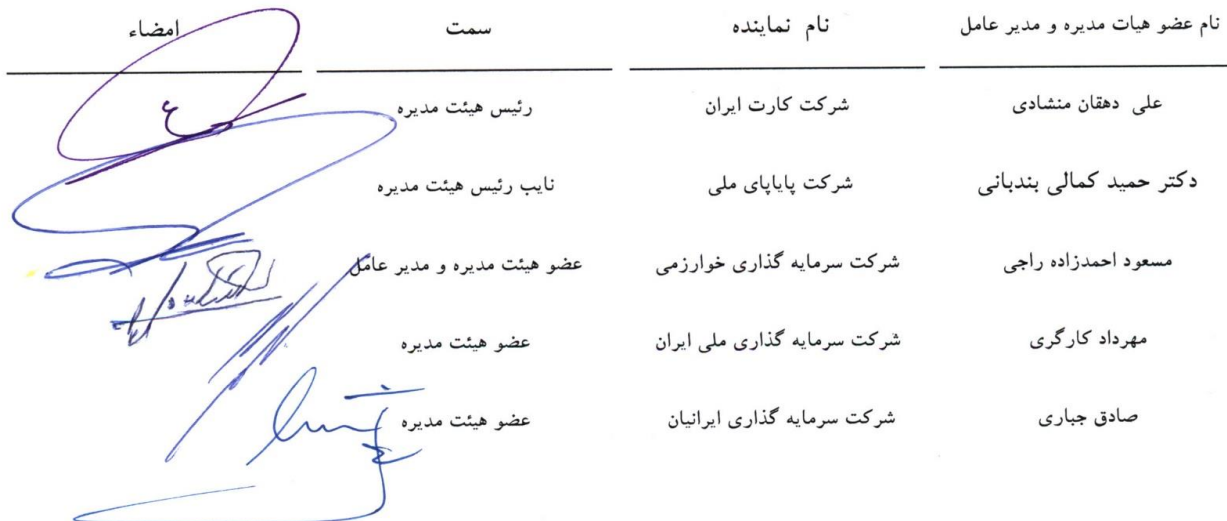 نام عضو هیات مدیره و مدیر عامل نام نماینده سمت امضاء
علی دهقان منشادی شرکت کارت ایران رئیس هیئت مدیره
دکتر حمید کمالی بندبانی شرکت پایاپای ملی نایب رئیس هیئت مدیره
مسعود احمدزاده راجی شرکت سرمایه گذاری خوارزمی عضو هیئت مدیره و مدیر عامل
مهرداد کارگری شرکت سرمایه گذاری ملی ایران عضو هیئت مدیره
صادق جباری شرکت سرمایه گذاری ایرانیان عضو هیئت مدیره